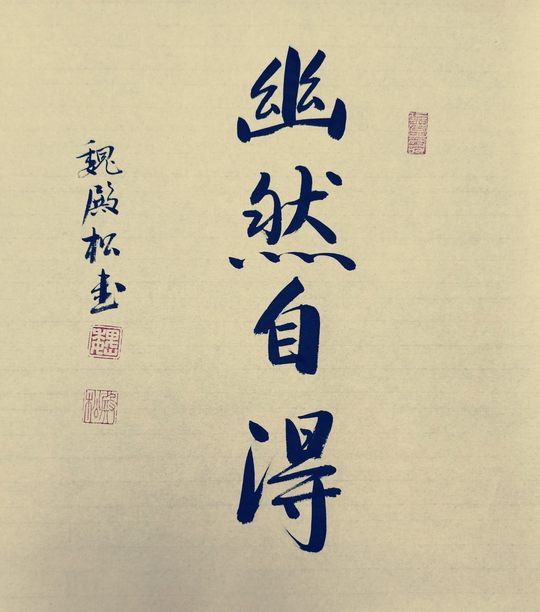 幽然自得
魏殿松书